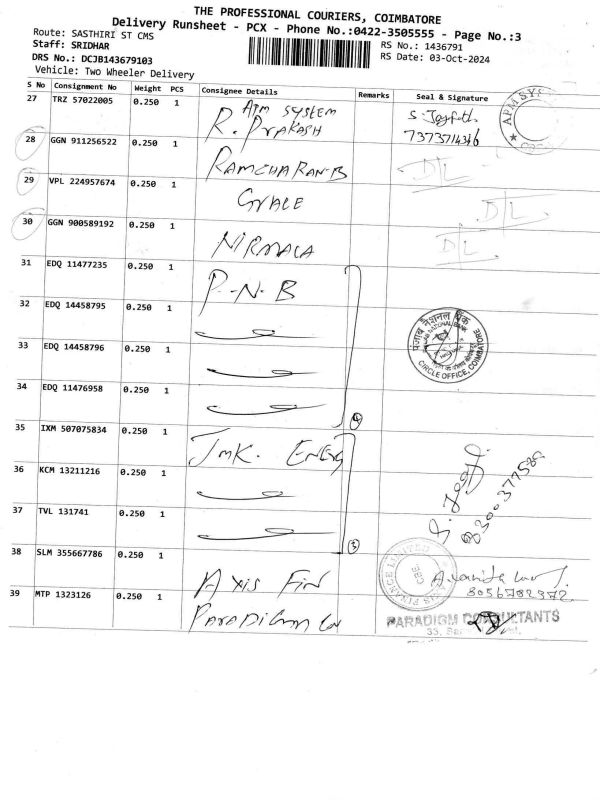 THE PROFESSIONAL COURIERS, COIMBATORE
Delivery Runsheet - PCX - Phone No.:0422-3505555 - Page No.:3
Route: SASTHIRI ST CMS
RS No.: 1436791
Staff: SRIDHAR
RS Date: 03-Oct-2024
DRS No.: DCJB143679103
Vehicle: Two Wheeler Delivery
S No Consignment No Weight PCS Consignee Details Remarks Seal & Signature
27 TRZ 57022005 0.250 1 APM SYSTEM
R. PRAKASH
7373714346
APM SYS
28 GGN 911256522 0.250 1 RAMCHARAN-B D/L
29 VPL 224957674 0.250 1 GRACE D/L
30 GGN 900589192 0.250 1 NIRMALA D/L
31 EDQ 11477235 0.250 1 P-N-B
32 EDQ 14458795 0.250 1
पंजाब नैशनल बैंक
PUNJAB NATIONAL BANK
CIRCLE OFFICE, COIMBATORE
33 EDQ 14458796 0.250 1
34 EDQ 11476958 0.250 1
4
35 IXM 507075834 0.250 1 JMK. ENERG
36 KCM 13211216 0.250 1
37 TVL 131741 0.250 1
3
38 SLM 355667786 0.250 1 AXIS FIN
AXIS FINANCE LIMITED
CBE
8056782972
39 MTP 1323126 0.250 1 PARADIGM CON
PARADIGM CONSULTANTS
33,